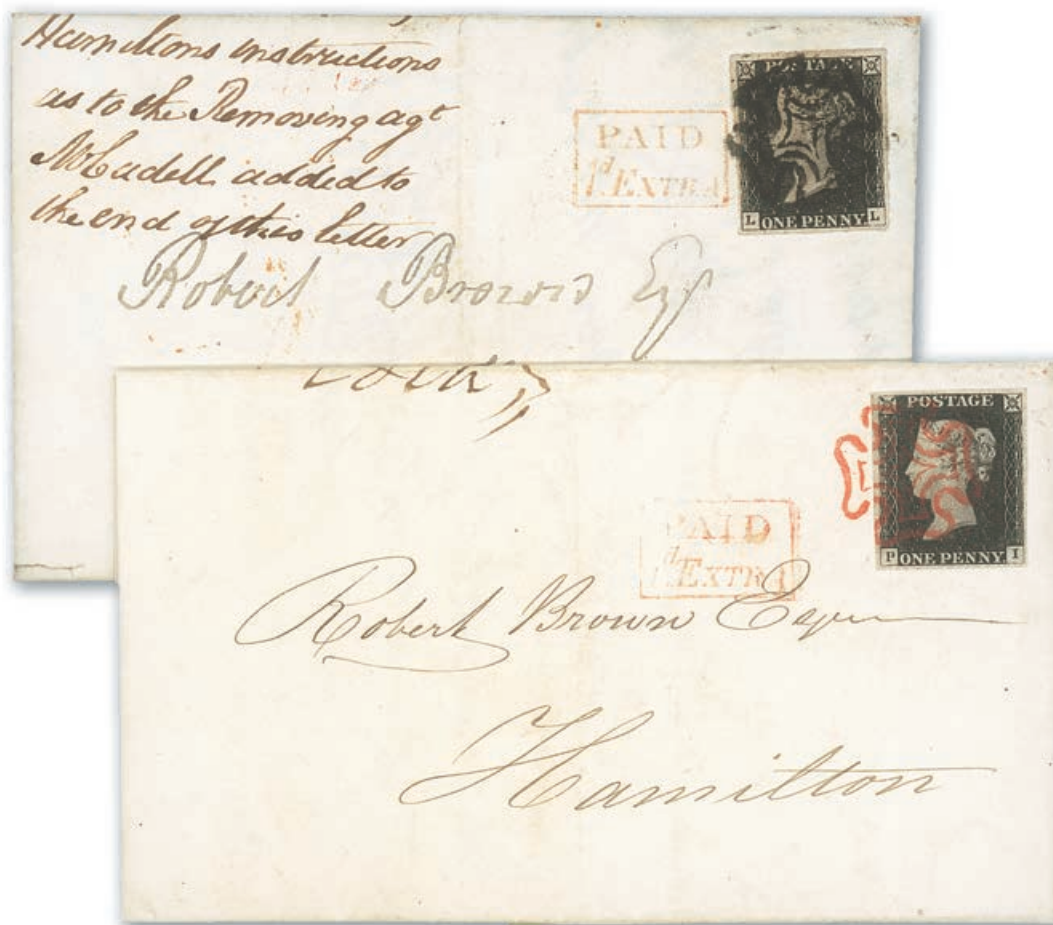 Hamiltons instructions
as to the Removing agt
McCadell added to
the end of this letter
PAID
1d EXTRA
POSTAGE
L ONE PENNY L
Robert Brown Esq
POSTAGE
P ONE PENNY I
PAID
1d EXTRA
Robert Brown Esqre
Hamilton